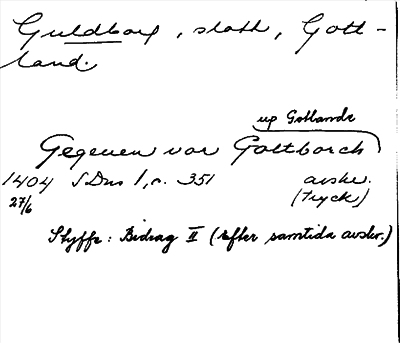 Guldborg, slott, Gott-
land.
up Gotlande
Gegeven vor Gottborch
1404 SDns 1, n. 351 avskr.
27/6 (tryck)
Styffe: Bidrag II (efter samtida avskr.)